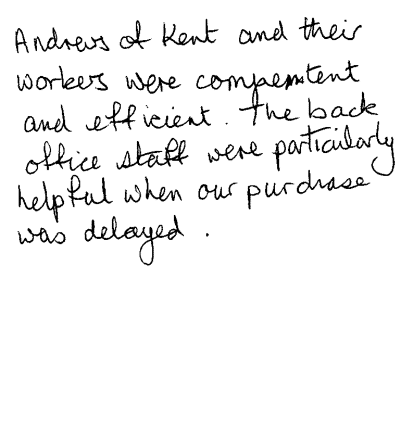 Andrews of Kent and their
workers were compemtent
and efficient. The back
office staff were particularly
helpful when our purchase
was delayed.